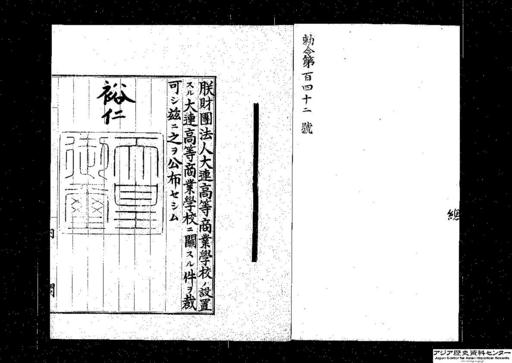 勅令第百四十二號
朕財團法人大連高等商業學校ノ設置
スル大連高等商業學校ニ關スル件ヲ裁
可シ茲ニ之ヲ公布セシム
裕仁
天皇
御璽
アジア歴史資料センター
Japan Center for Asian Historical Records